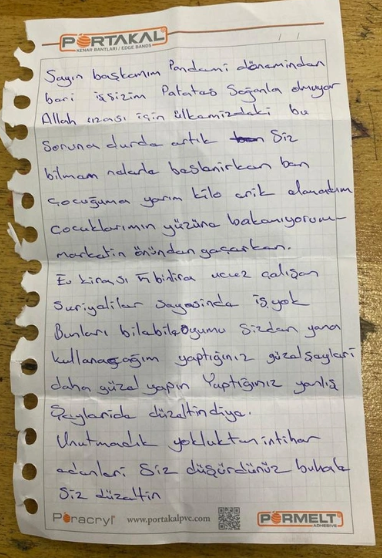 PORTAKAL
KENAR BANTLARI / EDGE BANDS
/ /
Sayın başkanım Pandemi döneminden
beri işsizim Patates Soğanla olmuyor
Allah rızası için ülkemizdeki bu
Soruna durda artık Siz
bilmem nelerle beslenirken ben
çocuğuma yarım kilo erik alamadım
çocuklarımın yüzüne bakamıyorum
marketin önünden geçerken.
Ev kirası Fi bitira ucuz çalışan
Suriyeliler sayesinde iş yok
Bunları bilebile oyumu sizden yana
kullanacağım yaptığınız güzel şeyleri
daha güzel yapın Yaptığınız yanlış
Şeyleride düzeltin diye.
Unutmadık yokluktan intihar
edenleri Siz düşürdünüz bu hale
Siz düzeltin
Poracryl www.portakalpvc.com PORMELT
ADHESIVE